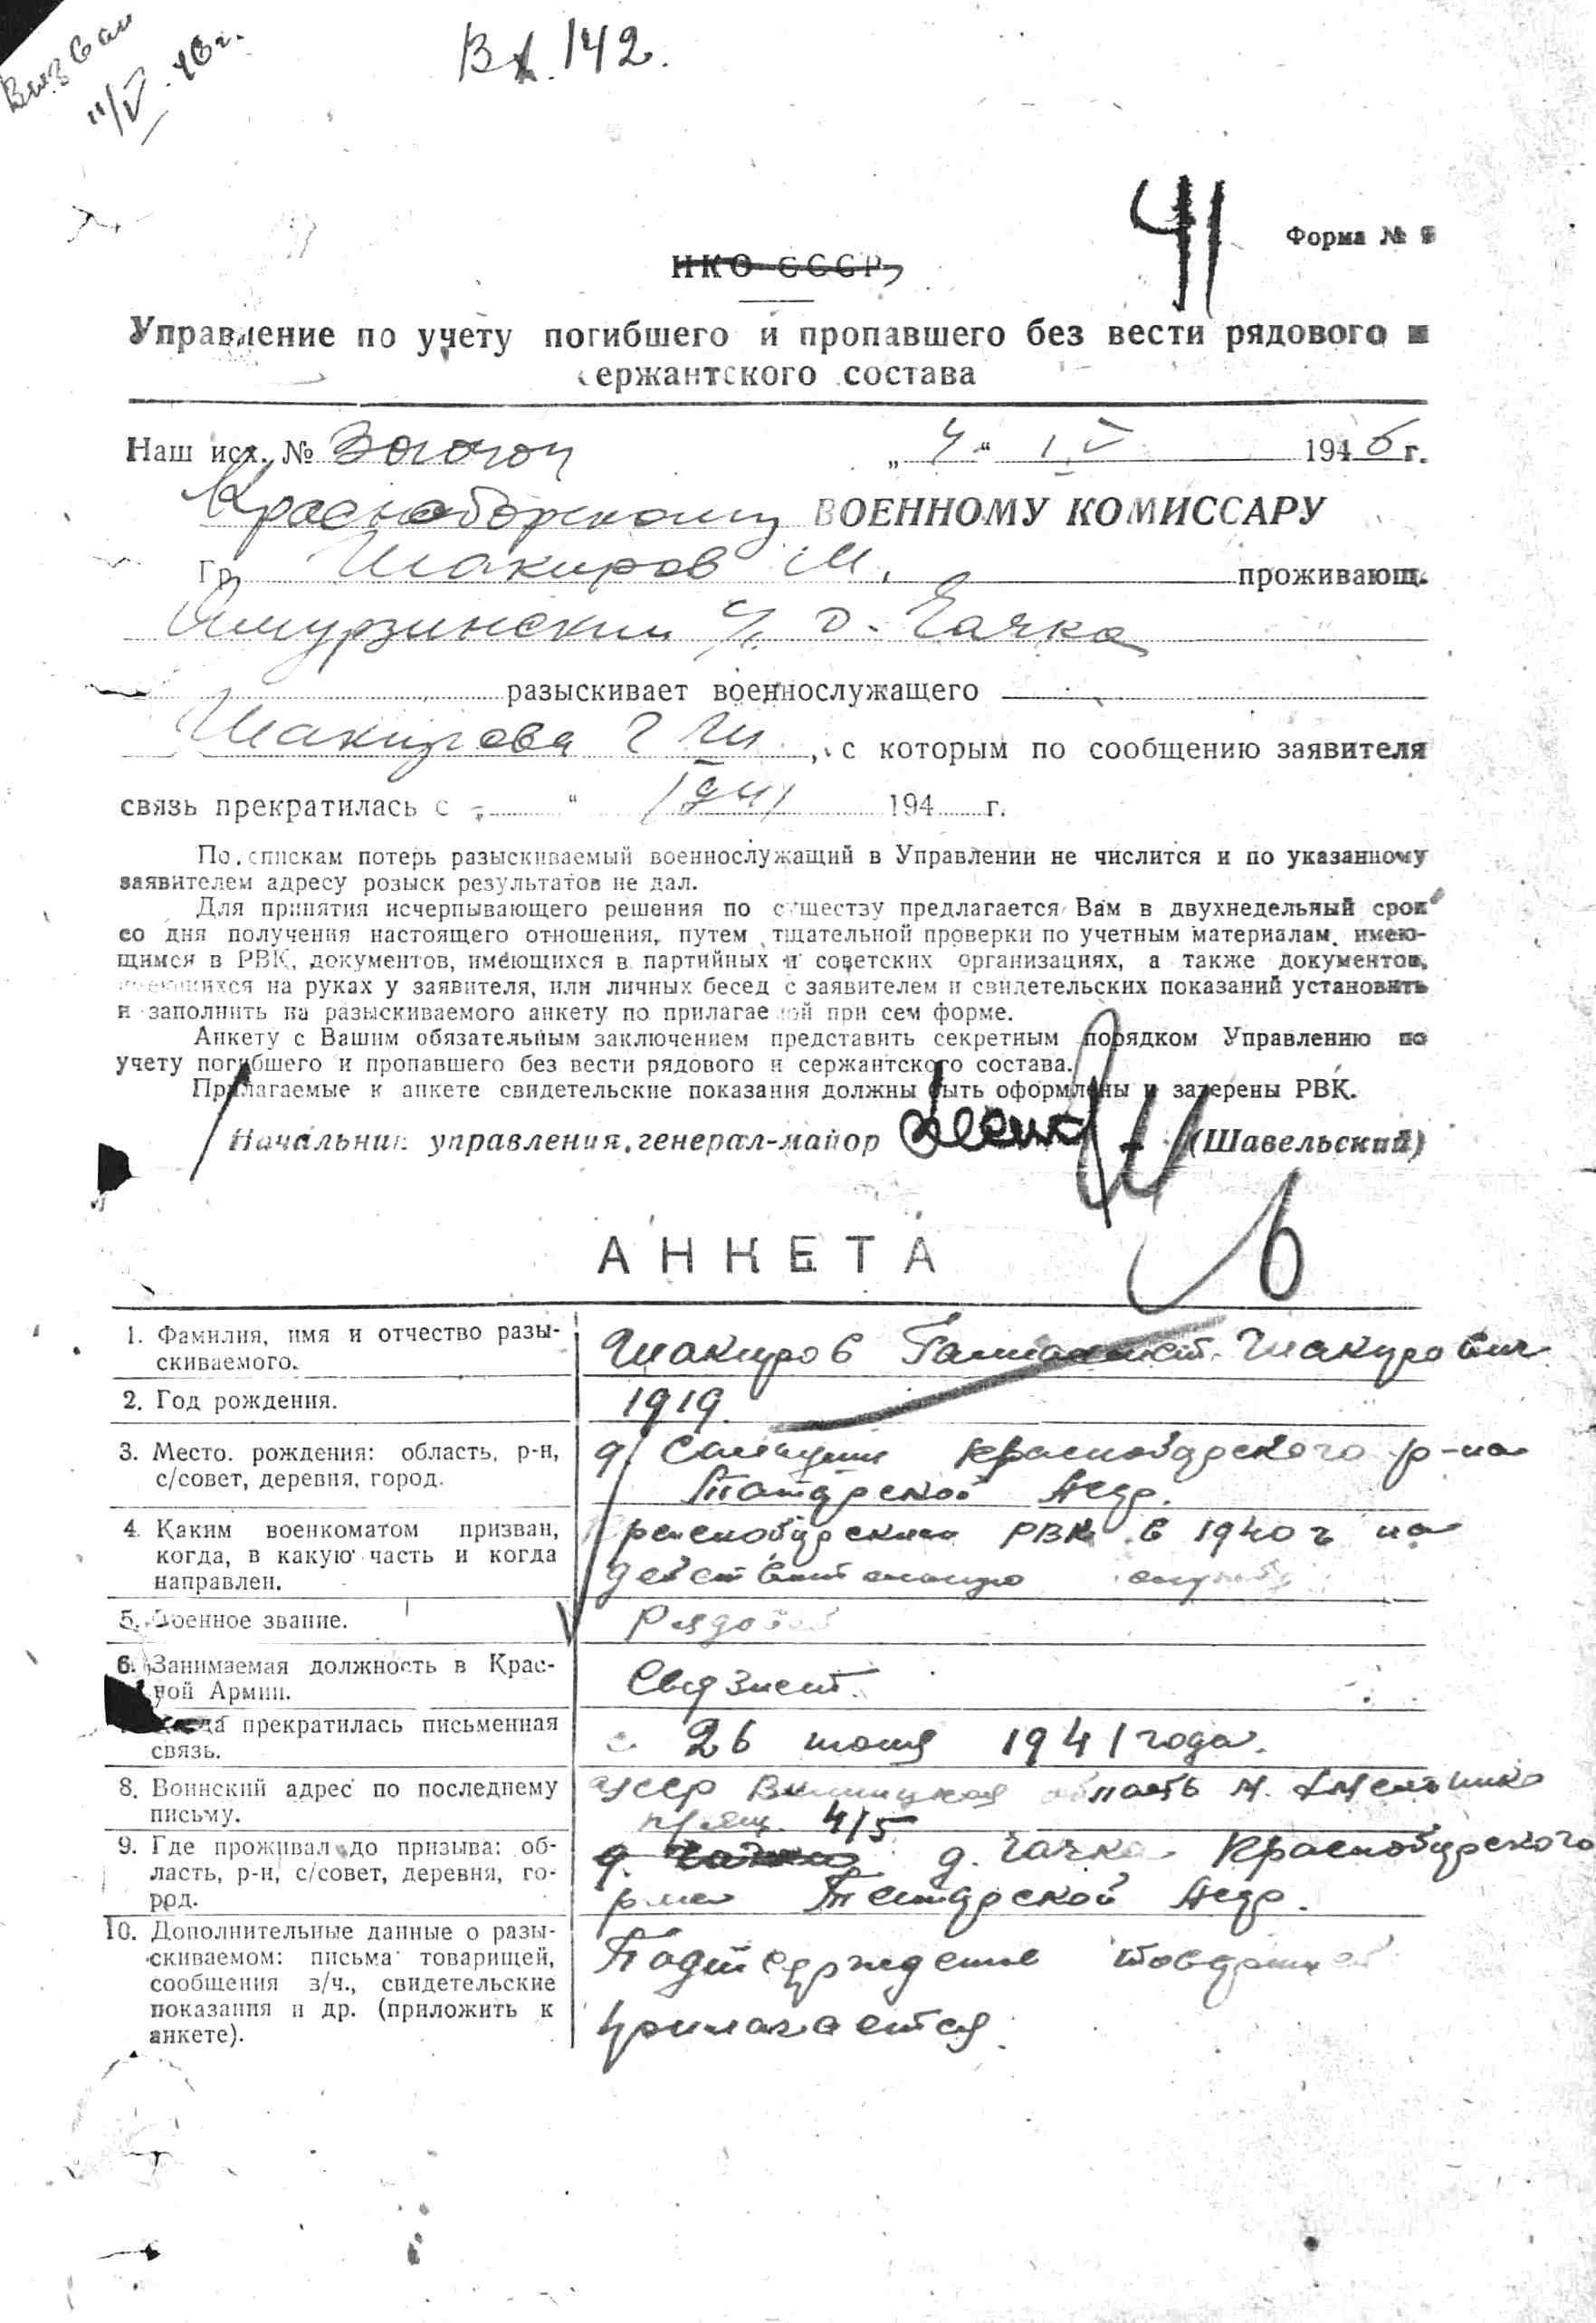 Вызван
11/V-46г.
Вх. 142.
41
Форма №
НКО СССР
Управление по учету погибшего и пропавшего без вести рядового и
сержантского состава
Наш исх. № „4“ IV 1946 г.
Красноборскому ВОЕННОМУ КОМИССАРУ
Гр. Шакиров М. проживающ.
д. Гачка
разыскивает военнослужащего
Шакирова Г Ш, с которым по сообщению заявителя
связь прекратилась с „ “ 1941 194 г.
По спискам потерь разыскиваемый военнослужащий в Управлении не числится и по указанному
заявителем адресу розыск результатов не дал.
Для принятия исчерпывающего решения по существу предлагается Вам в двухнедельный срок
со дня получения настоящего отношения, путем тщательной проверки по учетным материалам, имею-
щимся в РВК, документов, имеющихся в партийных и советских организациях, а также документов,
имеющихся на руках у заявителя, или личных бесед с заявителем и свидетельских показаний установить
и заполнить на разыскиваемого анкету по прилагаемой при сем форме.
Анкету с Вашим обязательным заключением представить секретным порядком Управлению по
учету погибшего и пропавшего без вести рядового и сержантского состава.
Прилагаемые к анкете свидетельские показания должны быть оформлены и заверены РВК.
Начальник управления, генерал-майор (Шавельский)
АНКЕТА
1. Фамилия, имя и отчество разы-
скиваемого.
Шакиров Шакирович
2. Год рождения.
1919.
3. Место рождения: область, р-н,
с/совет, деревня, город.
д. Красноборского р-на
Татарской АССР.
4. Каким военкоматом призван,
когда, в какую часть и когда
направлен.
Красноборским РВК в 1940 г на
действительную службу
5. Военное звание.
Рядовой
6. Занимаемая должность в Крас-
ной Армии.
Связист.
7. Когда прекратилась письменная
связь.
с 26 июня 1941 года.
8. Воинский адрес по последнему
письму.
УССР Винницкая область м.
п/ящ. 4/5
9. Где проживал до призыва: об-
ласть, р-н, с/совет, деревня, го-
род.
д. Гачка д. Гачка Красноборского
р-на Татарской АССР.
10. Дополнительные данные о разы-
скиваемом: письма товарищей,
сообщения з/ч., свидетельские
показания и др. (приложить к
анкете).
Подтверждение товарищей
прилагается.